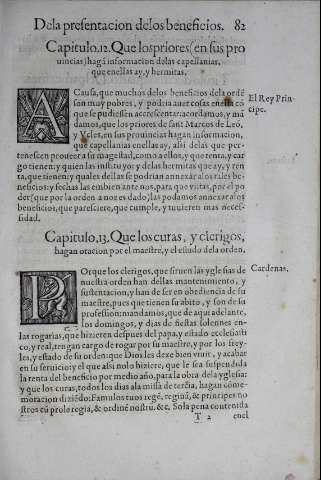 De la presentacion de los beneficios. 82
Capitulo.12. Que los priores (en sus pro
uincias) hagã informacion de las capellanias,
que en ellas ay, y hermitas.
A Causa, que muchos delos beneficios dela ordẽ
son muy pobres, y podria auer cosas en ella cõ
que se pudiessen accrescentar: acordamos, y mã
damos, que los priores de sant Marcos de Leõ,
y Vcles, en sus prouincias hagan informacion,
que capellanias en ellas ay, assi delas que per-
tenescen proueer a su magestad, como a ellos, y que renta, y car
go tienen: y quien las instituyos y delas hermitas que ay, y ren
ta, que tienen; y quales dellas se podrian annexar a los tales be-
neficios: y fechas las embien ante nos, para que vistas, por el po
der (que por la orden a nos es dado) las podamos annexar a los
beneficios, que paresciere, que cumple, y tuuieren mas neces-
sidad.
El Rey Prin-
cipe.
Capitulo.13. Que los curas, y clerigos,
hagan oracion por el maestre, y el estado dela orden.
POrque los clerigos, que siruen las yglesias de
nuestra orden han dellas mantenimiento, y
sustentacion, y han de ser en obediencia de su
maestre, pues que tienen su abito, y son de su
profession: mandamos, que de aqui adelante,
los domingos, y dias de fiestas solennes en-
las rogarias, que hizieren despues del papa, y estado ecclesiasti
co, y real, tengan cargo de rogar por su maestro, y por los frey-
les, y estado de su orden: que Dios les dexe bien viuir, y acabar
en su seruicio: y el que assi nolo hiziere, que le sea suspendida
la renta del beneficio por medio año, para la obra dela yglesia:
y que los curas, todos los dias ala missa de tercia, hagan cõme-
moracion diziẽdo: Famulos tuos regẽ, reginã, & principes no
stros cũ prole regia, & ordinẽ nostrũ, &c. So la pena contenida
Cardenas.
T 2 enel